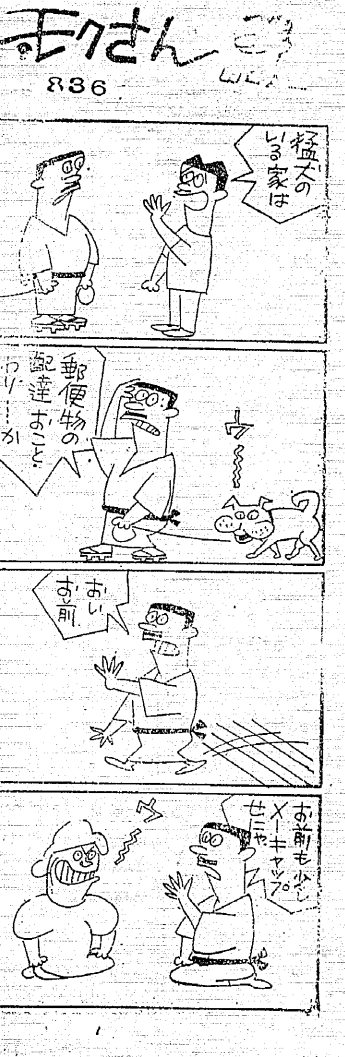 モクさん
836
猛犬の
いる家は
郵便物の
配達おこと
わり…か
ウ〜
おい
お前
お前も少し
メーキャップ
せにゃ
ウ〜